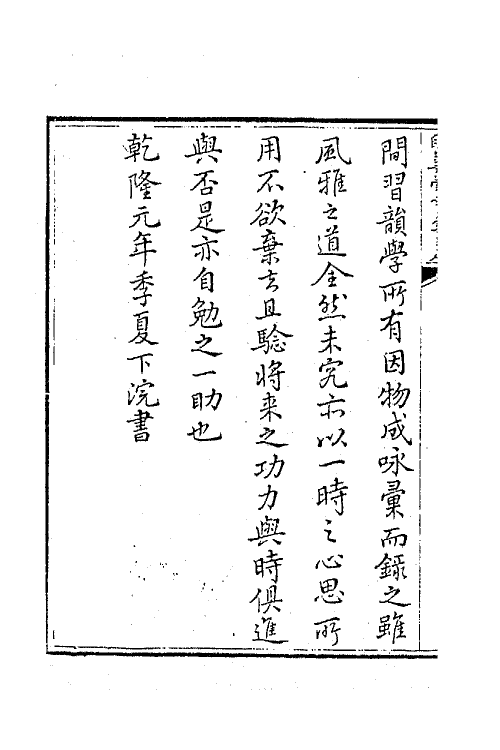 間習韻學所有因物成咏彚而錄之雖
風雅之道全然未究亦以一時之心思所
用不欲棄去且騐將来之功力與時俱進
與否是亦自勉之一助也
乾隆元年季夏下浣書